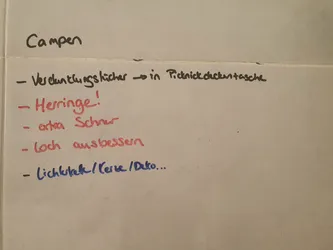 Campen
- Verdunklungstücher → in Picknickdeckentasche
- Herringe!
- extra Schnur
- Loch ausbessern
- Lichterkette/Kerze/Deko...